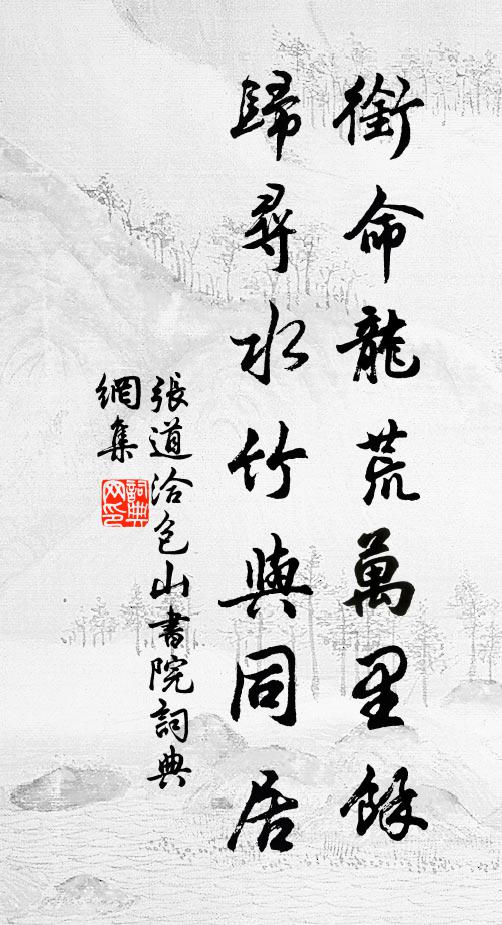 銜命龍荒萬里餘
歸尋水竹與同居
張道洽包山書院詞典
網集
詞典
網印